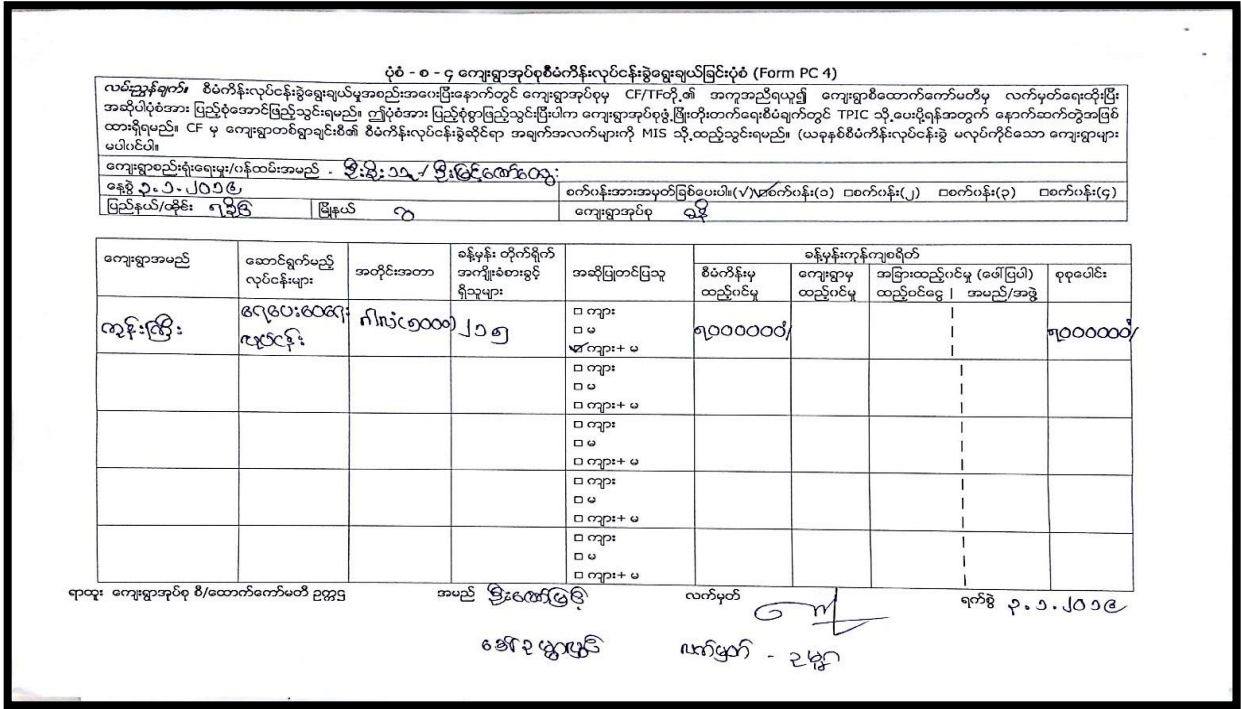 ပုံစံ - စ - ၄ ကျေးရွာအုပ်စုစီမံကိန်းလုပ်ငန်းခွဲရွေးချယ်ခြင်းပုံစံ (Form PC 4)
လမ်းညွှန်ချက်။ စီမံကိန်းလုပ်ငန်းခွဲရွေးချယ်မှုအစည်းအဝေးပြီးနောက်တွင် ကျေးရွာအုပ်စုမှ CF/TFတို့၏ အကူအညီရယူ၍ ကျေးရွာစီထောက်ကော်မတီမှ လက်မှတ်ရေးထိုးပြီး
အဆိုပါပုံစံအား ပြည့်စုံအောင်ဖြည့်သွင်းရမည်။ ဤပုံစံအား ပြည့်စုံစွာဖြည့်သွင်းပြီးပါက ကျေးရွာအုပ်စုဖွံ့ဖြိုးတိုးတက်ရေးစီမံချက်တွင် TPIC သို့ပေးပို့ရန်အတွက် နောက်ဆက်တွဲအဖြစ်
ထားရှိရမည်။ CF မှ ကျေးရွာတစ်ရွာချင်းစီ၏ စီမံကိန်းလုပ်ငန်းခွဲဆိုင်ရာ အချက်အလက်များကို MIS သို့ထည့်သွင်းရမည်။ (ယခုနှစ်စီမံကိန်းလုပ်ငန်းခွဲ မလုပ်ကိုင်သော ကျေးရွာများ
မပါဝင်ပါ။
ကျေးရွာစည်းရုံးရေးမှူး/ဝန်ထမ်းအမည် -
နေ့စွဲ ၃.၁.၂၀၁၉ စက်ဝန်းအားအမှတ်ခြစ်ပေးပါ။(√) စက်ဝန်း(၁) □စက်ဝန်း(၂) □စက်ဝန်း(၃) □စက်ဝန်း(၄)
ပြည်နယ်/တိုင်း ရခိုင် မြို့နယ် ဂွ ကျေးရွာအုပ်စု ဓနိ
ကျေးရွာအမည် ဆောင်ရွက်မည့် လုပ်ငန်းများ အတိုင်းအတာ ခန့်မှန်း တိုက်ရိုက် အကျိုးခံစားခွင့် ရှိသူများ အဆိုပြုတင်ပြသူ ခန့်မှန်းကုန်ကျစရိတ်
စီမံကိန်းမှ ထည့်ဝင်မှု ကျေးရွာမှ ထည့်ဝင်မှု အခြားထည့်ဝင်မှု (ဖေါ်ပြပါ) ထည့်ဝင်ငွေ | အမည်/အဖွဲ့ စုစုပေါင်း
ကွန်းကြီး ရေပေးဝေရေး လုပ်ငန်း ဂါလံ(၅၀၀၀) ၂၁၅ □ ကျား ၇၀၀၀၀၀၀/ ၇၀၀၀၀၀၀/
□ မ
☑ ကျား+ မ
□ ကျား
□ မ
□ ကျား+ မ
□ ကျား
□ မ
□ ကျား+ မ
□ ကျား
□ မ
□ ကျား+ မ
□ ကျား
□ မ
□ ကျား+ မ
ရာထူး ကျေးရွာအုပ်စု စီ/ထောက်ကော်မတီ ဥက္ကဌ အမည် လက်မှတ် ရက်စွဲ ၃.၁.၂၀၁၉
လက်မှတ် -